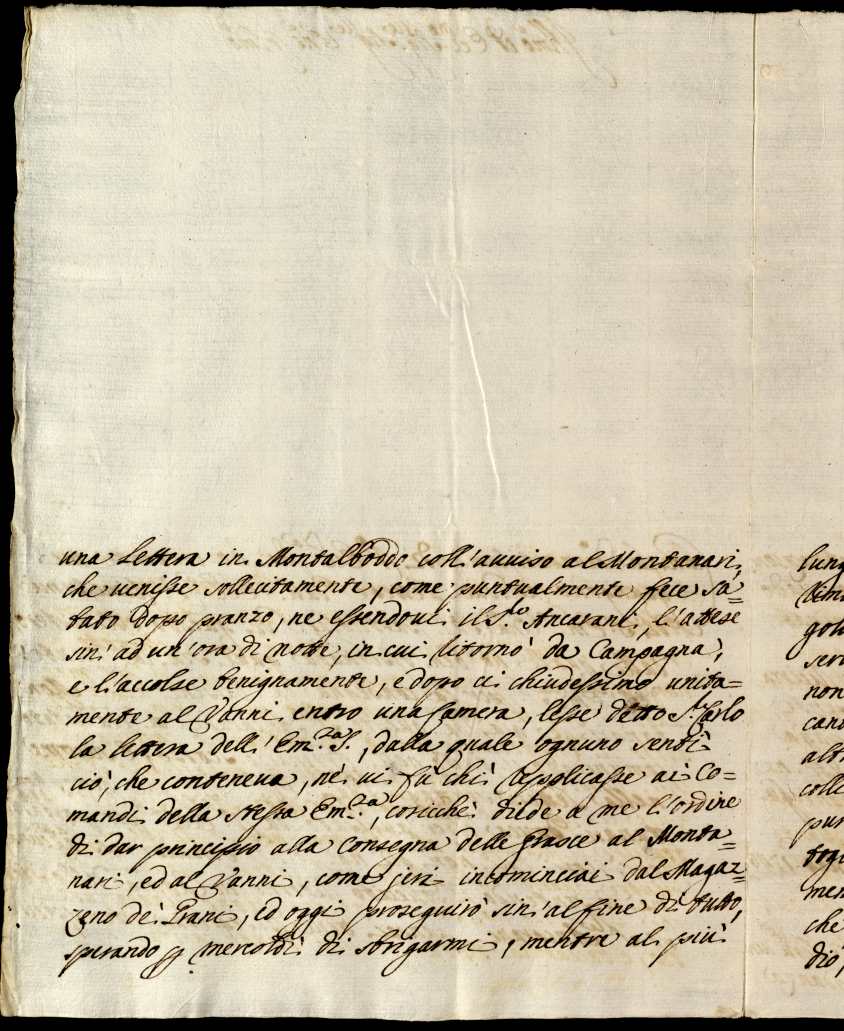 una Lettera in Montalboddo coll'auuiso al Montanari,
che uenisse sollecitamente, come puntualmente fece Sa=
bato dopo pranzo, ne essendoui il S.r Ancarani, l'attese
sin' ad un' ora di notte, in cui ritornò da Campagna,
e l'accolse benignamente, e dopo ci chiudessimo unita=
mente al Vanni entro una Camera, lesse detto S.r Carlo
la lettera dell' Em.za S., dalla quale ognuno sentì
ciò, che conteneua, nè ui fù chì replicasse ai Co=
mandi della stessa Em.za, cosicchè diede a me l'ordine
di dar principio alla Consegna delle Grasce al Monta=
nari, ed al Vanni, come jeri incominciai dal Magaz=
zeno de' Grani, ed oggi proseguirò sin' al fine di tutto,
sperando p mercoldì di sbrigarmi, mentre al più
lung
golo
seru
non
cand
altr
colle
pun
men
che
dio,